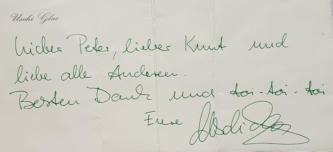 Uschi Glas
Lieber Peter, lieber Knut und
liebe alle Anderen.
Besten Dank und toi-toi-toi
Eure